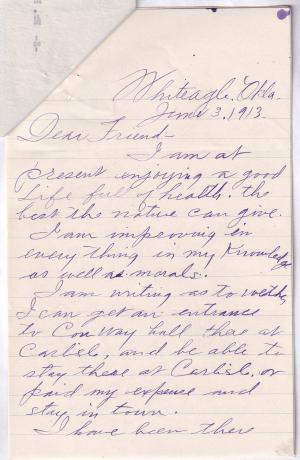 Whiteagle, Okla.
June 3, 1913.
Dear Friend-
I am at
present enjoying a good
Life full of health. the
best the native can give.
I am improving in
every thing in my Knowledge
as well as morals.
I am writing as to wether
I can get an entrance
to Conway hall there at
Carlisle, and be able to
stay there at Carlisle, or
paid my expense and
stay in town.
I have been there